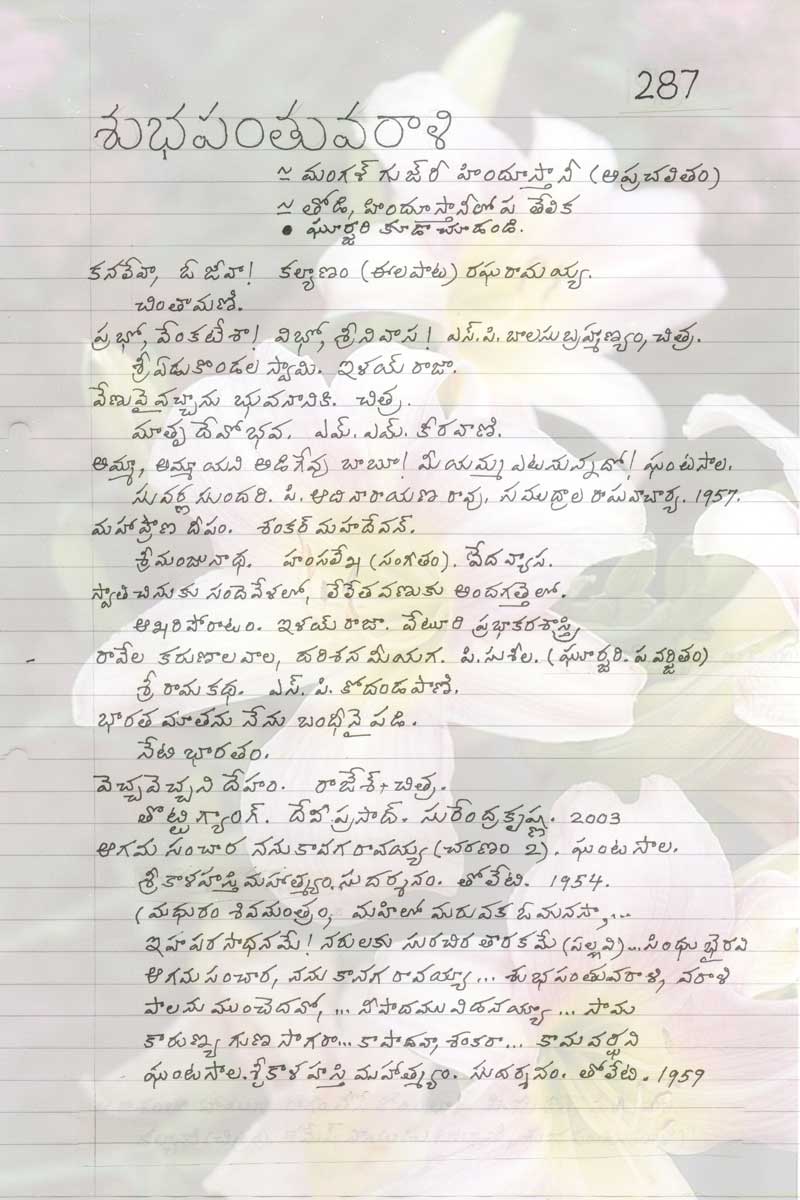 287
శుభపంతువరాళి
≃ మంగళ్ గుజ్రీ హిందూస్తానీ (అప్రచలితం)
≃ తోడి, హిందూస్తానీలో ప తేలిక
• ఘూర్జరి కూడా చూడండి.
కనలేవా, ఓ జీవా! కల్యాణం (ఈలపాట) రఘురామయ్య.
చింతామణి.
ప్రభో, వేంకటేశా! విభో, శ్రీనివాస! ఎస్.పి. బాలసుబ్రహ్మణ్యం, చిత్ర.
శ్రీ ఏడుకొండల స్వామి. ఇళయ్ రాజా.
వేణువై వచ్చాను భువనానికి. చిత్ర.
మాతృదేవోభవ. ఎమ్.ఎమ్. కీరవాణి.
అమ్మా, అమ్మా యని అడిగేవు బాబూ! మీయమ్మ ఎటనున్నదో! ఘంటసాల.
సువర్ణ సుందరి. పి. ఆదినారాయణ రావు. సముద్రాల రాఘవాచార్య. 1957.
మహాప్రాణ దీపం. శంకర్ మహదేవన్.
శ్రీమంజునాథ. హంసలేఖ (సంగీతం). వేదవ్యాస.
స్వాతిచినుకు సందెవేళలో, లేలేత వణుకు అందగత్తెలో.
ఆఖరిపోరాటం. ఇళయ్ రాజా. వేటూరి ప్రభాకరశాస్త్రి.
రావేల కరుణాలవాల, దరిశనమీయగ. పి.సుశీల. (ఘూర్జరి. ప వర్జితం)
శ్రీ రామకథ. ఎస్. పి. కోదండపాణి.
భారత మాతను నేను బంధీనై పడి.
నేటి భారతం.
వెచ్చవెచ్చని దేహం. రాజేశ్ + చిత్ర.
తొట్టి గ్యాంగ్. దేవీప్రసాద్. సురేంద్రకృష్ణ. 2003
ఆగమ సంచార ననుకావగ రావయ్య (చరణం 2). ఘంటసాల.
శ్రీకాళహస్తి మహాత్మ్యం. సుదర్శనం. తోలేటి. 1954.
(మధురం శివమంత్రం, మహిలో మరువక ఓ మనసా,...
ఇహపరసాధనమే! నరులకు సురచిర తారకమే (పల్లవి)...సింధుభైరవి
ఆగమసంచార, నను కావగ రావయ్యా... శుభపంతువరాళి, వరాళి
పాలను ముంచెదవో, ... నీపాదము విడనయ్యా ... సామ
కారుణ్య గుణ సాగరా... కాపాడవా, శంకరా... కామవర్ధని
ఘంటసాల. శ్రీకాళహస్తి మహాత్మ్యం. సుదర్శనం. తోలేటి. 1959